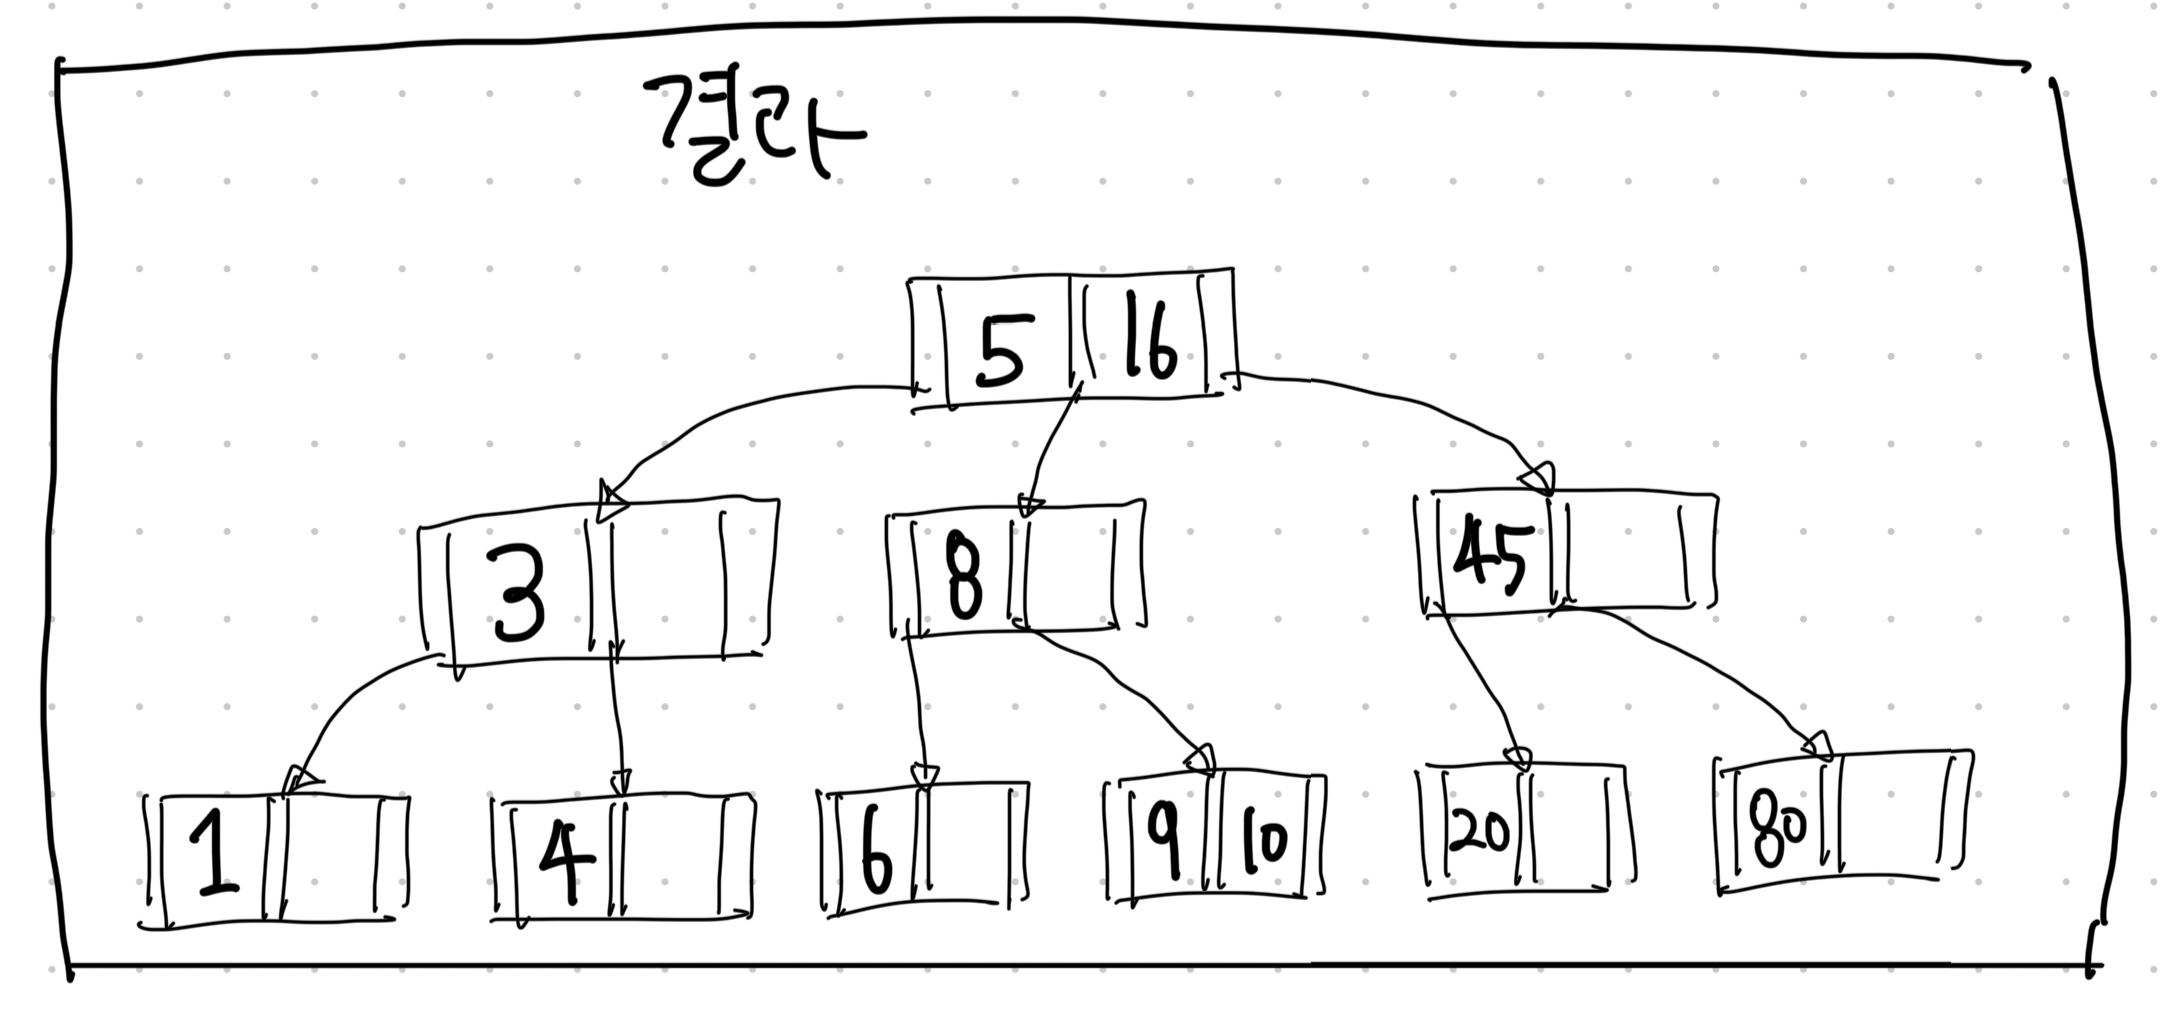 결과
5 16
3 8 45
1 4 6 9 10 20 80